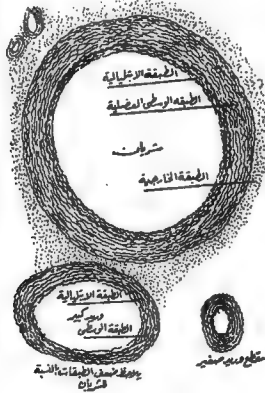 الطبقة الابتليالية
الطبقه الوسطى العضلية
شريان
الطبقة الخارجية
الطبقة الابتليالية
وريد كبير
الطبقة الوسطى
يلاحظ ضعف الطبقات بالنسبة
للشريان
مقطع وريد صغير